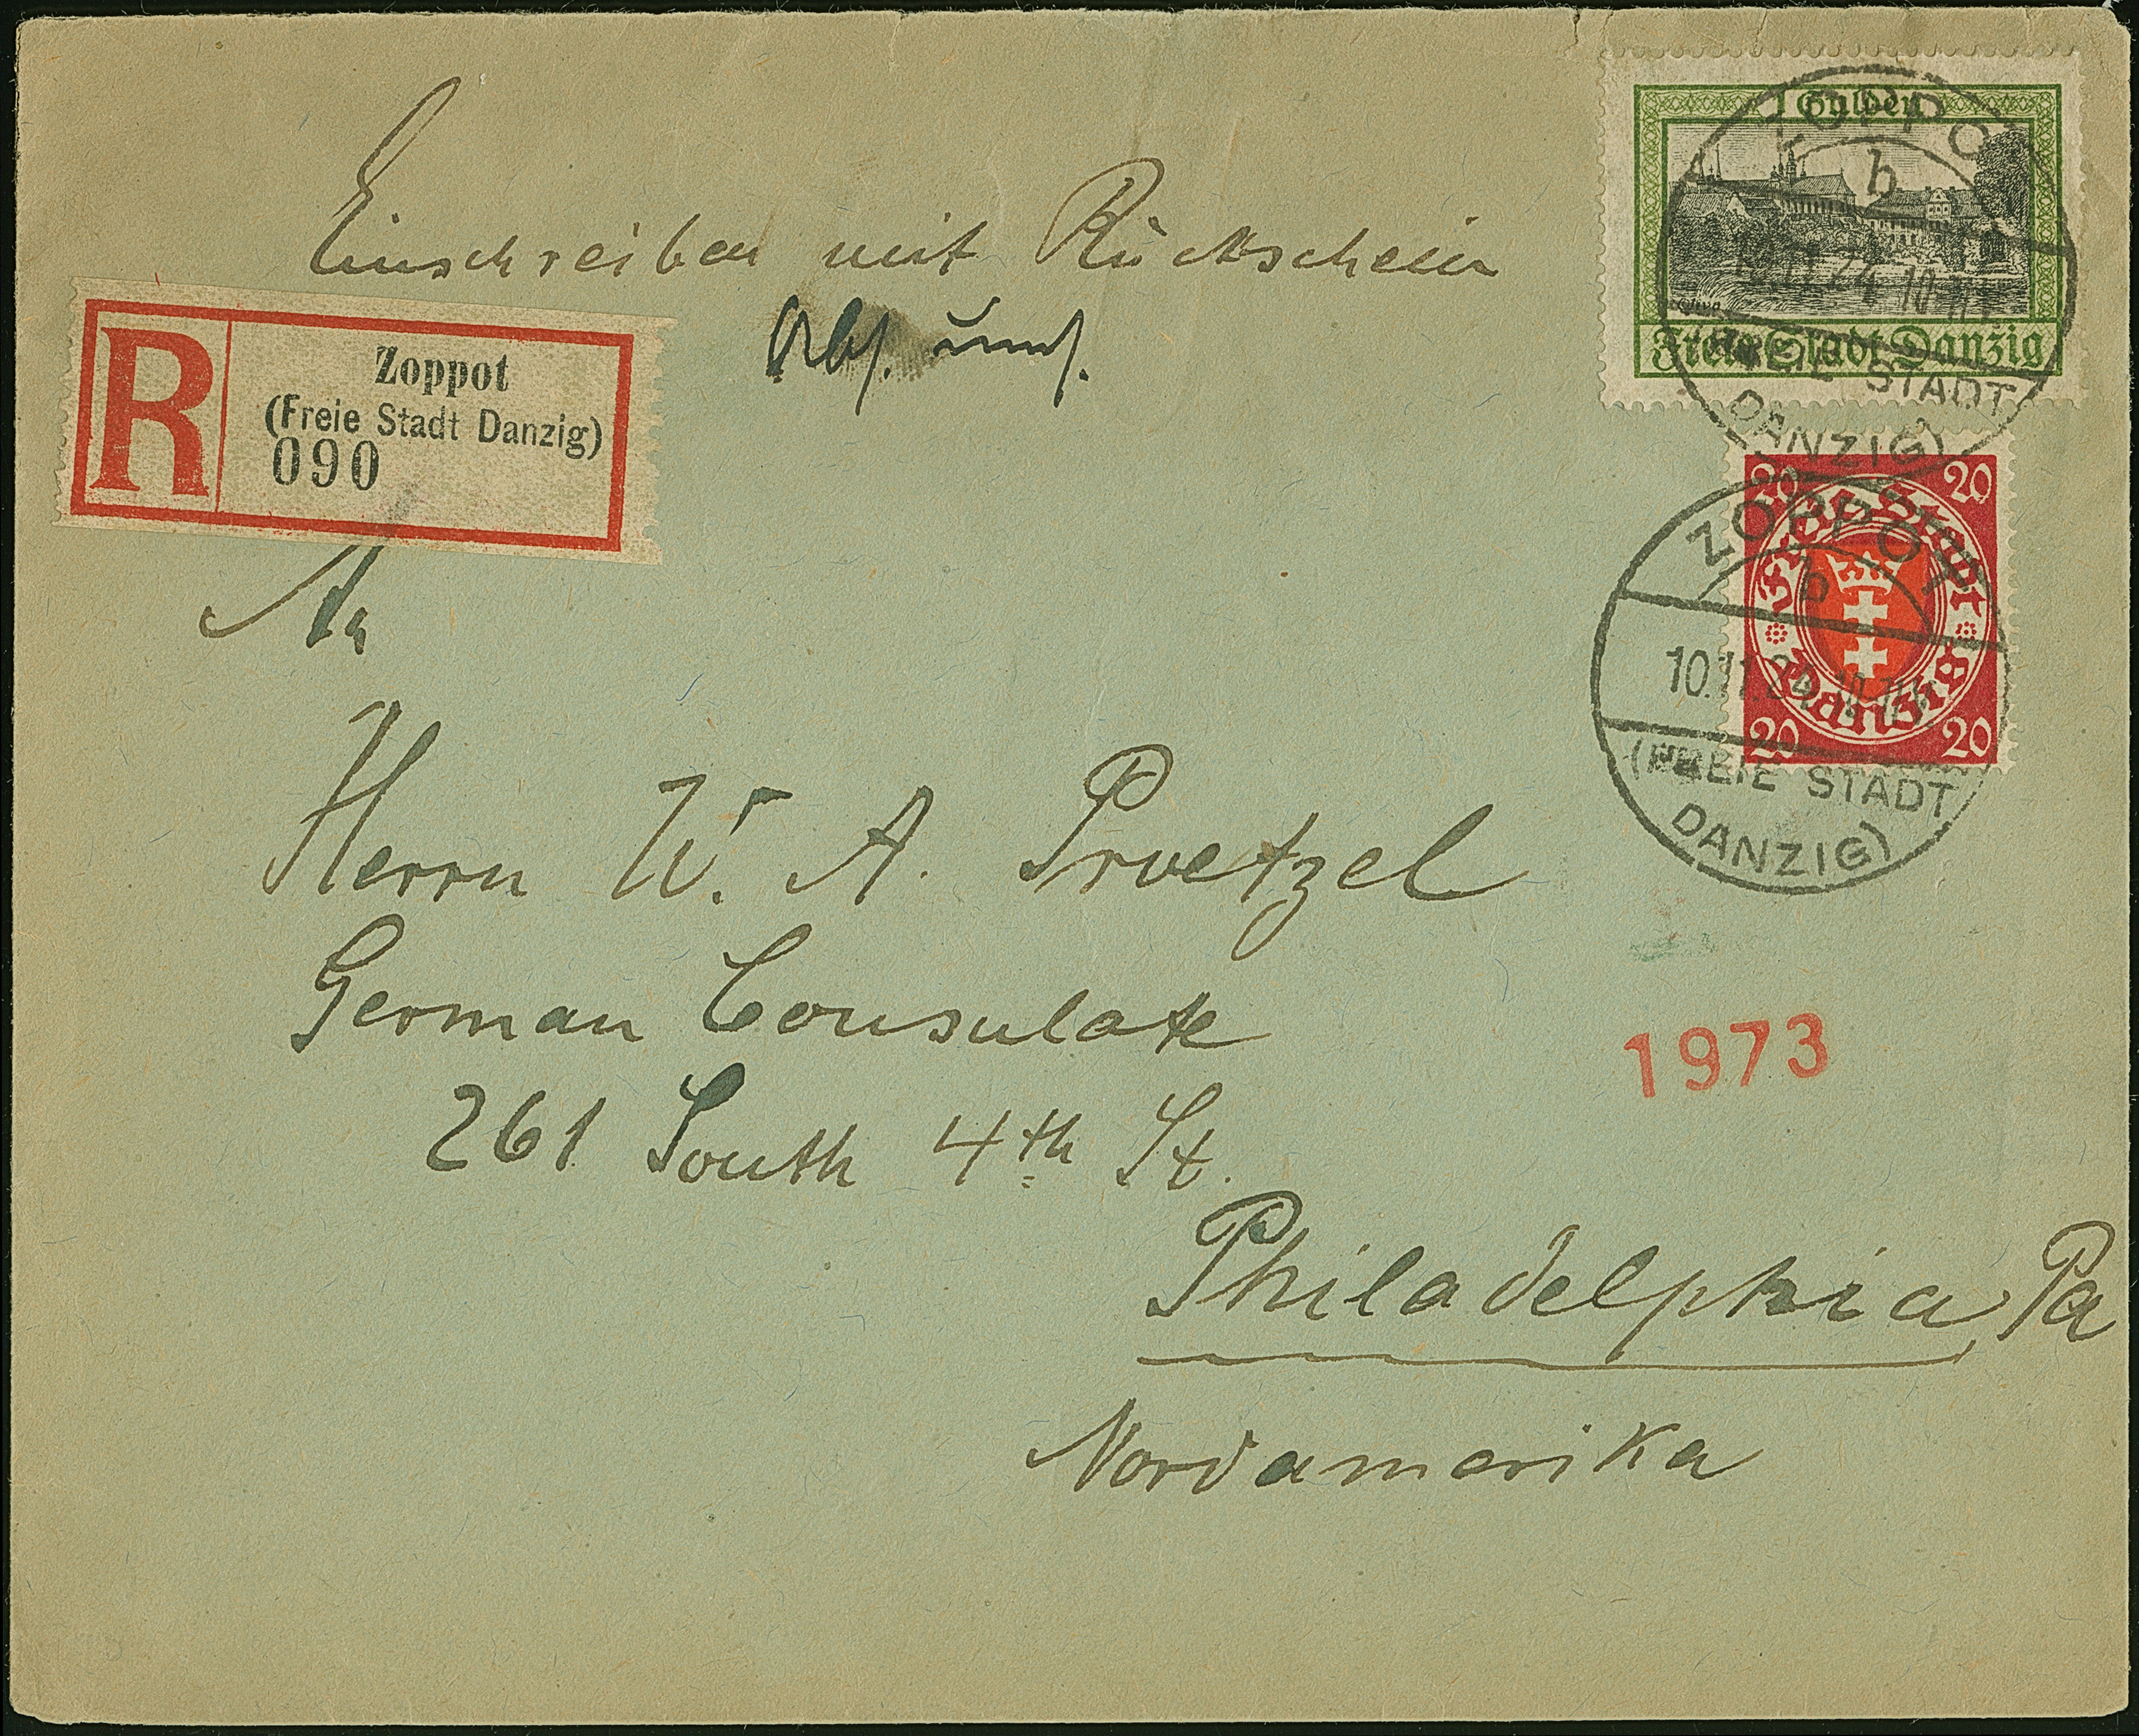 Einschreiben mit Rückschein
R
Zoppot
(Freie Stadt Danzig)
090
1 Gulden
Oliva
Freie Stadt Danzig
ZOPPOT
b
10.11.24 10-11V
(FREIE STADT
DANZIG)
20 20
Freie Stadt
Danzig
20 20
ZOPPOT
b
10.11.24 10-11V
(FREIE STADT
DANZIG)
An
Herrn W. A. Proetzel
German Consulate
1973
261 South 4th St.
Philadelphia, Pa
Nordamerika